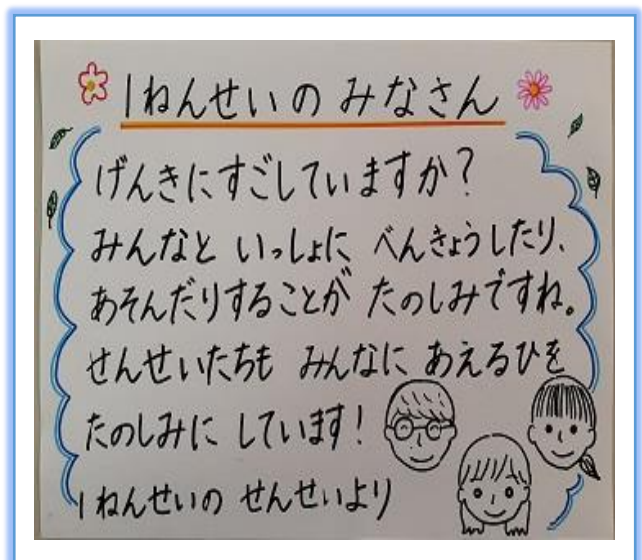 1ねんせいの みなさん
げんきにすごしていますか?
みんなと いっしょに べんきょうしたり、
あそんだりすることが たのしみですね。
せんせいたちも みんなに あえるひを
たのしみに しています!
1ねんせいの せんせいより